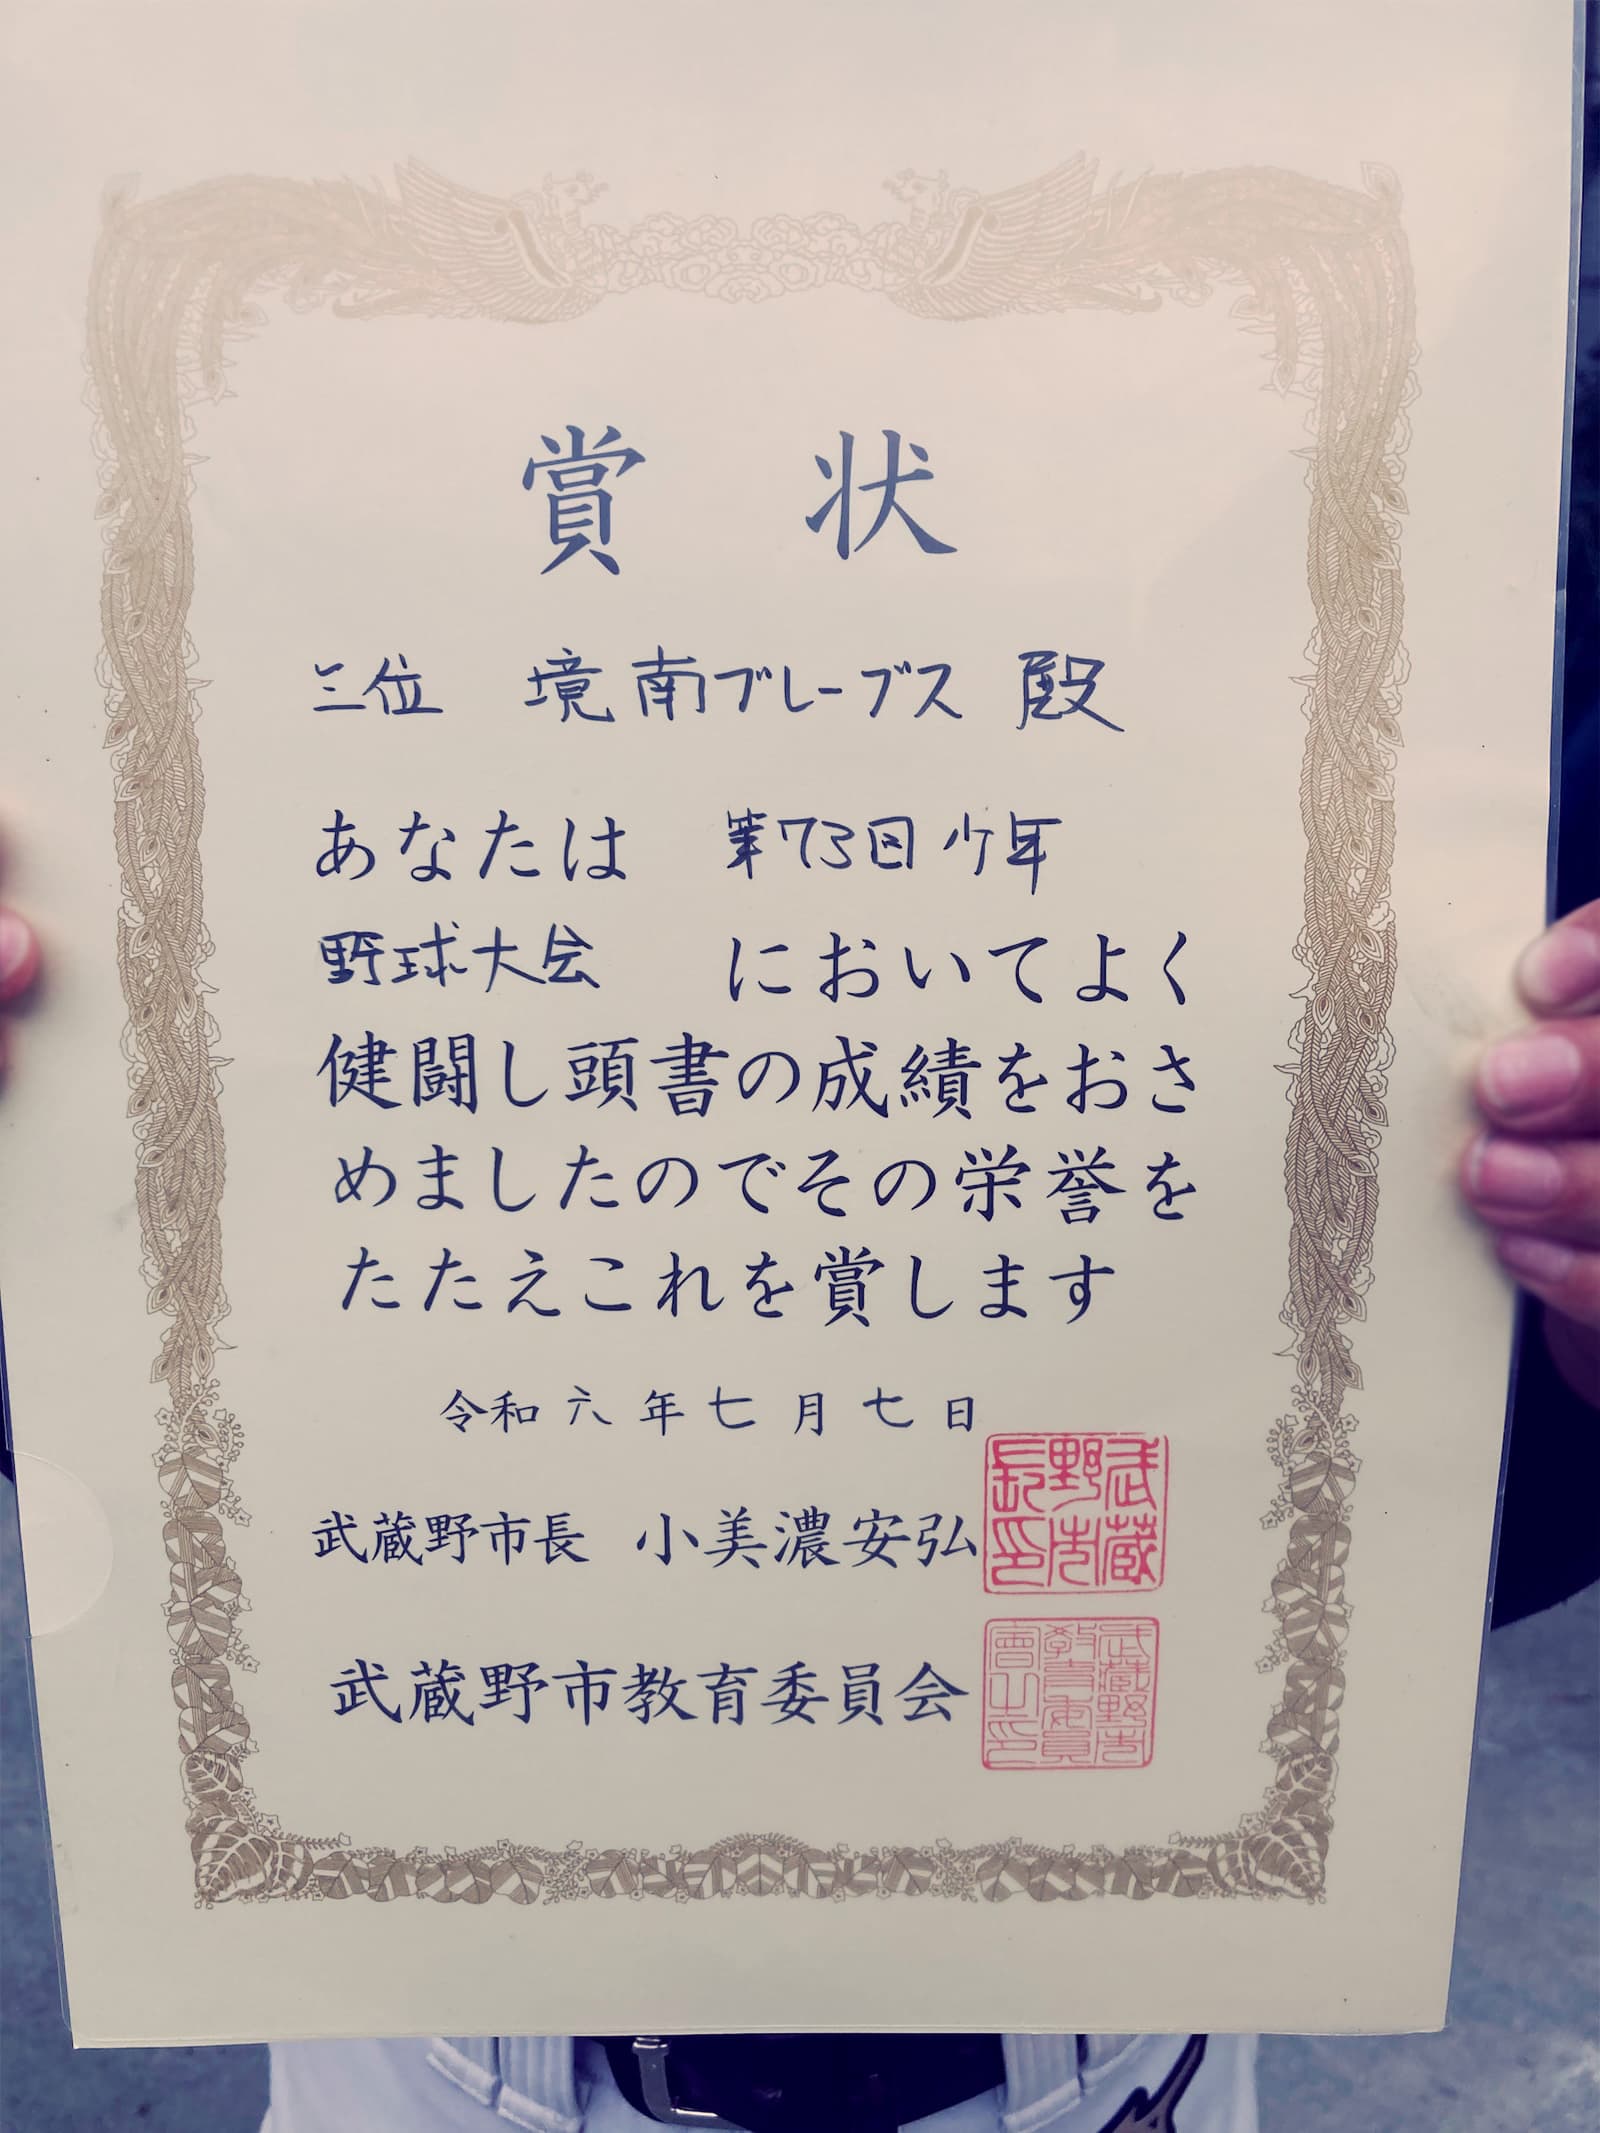 賞状
三位 境南ブレーブス 殿
あなたは 第73回少年
野球大会 においてよく
健闘し頭書の成績をおさ
めましたのでその栄誉を
たたえこれを賞します
令和六年七月七日
武蔵野市長 小美濃安弘
武蔵野市長印
武蔵野市教育委員会
武蔵野市教育委員會之印